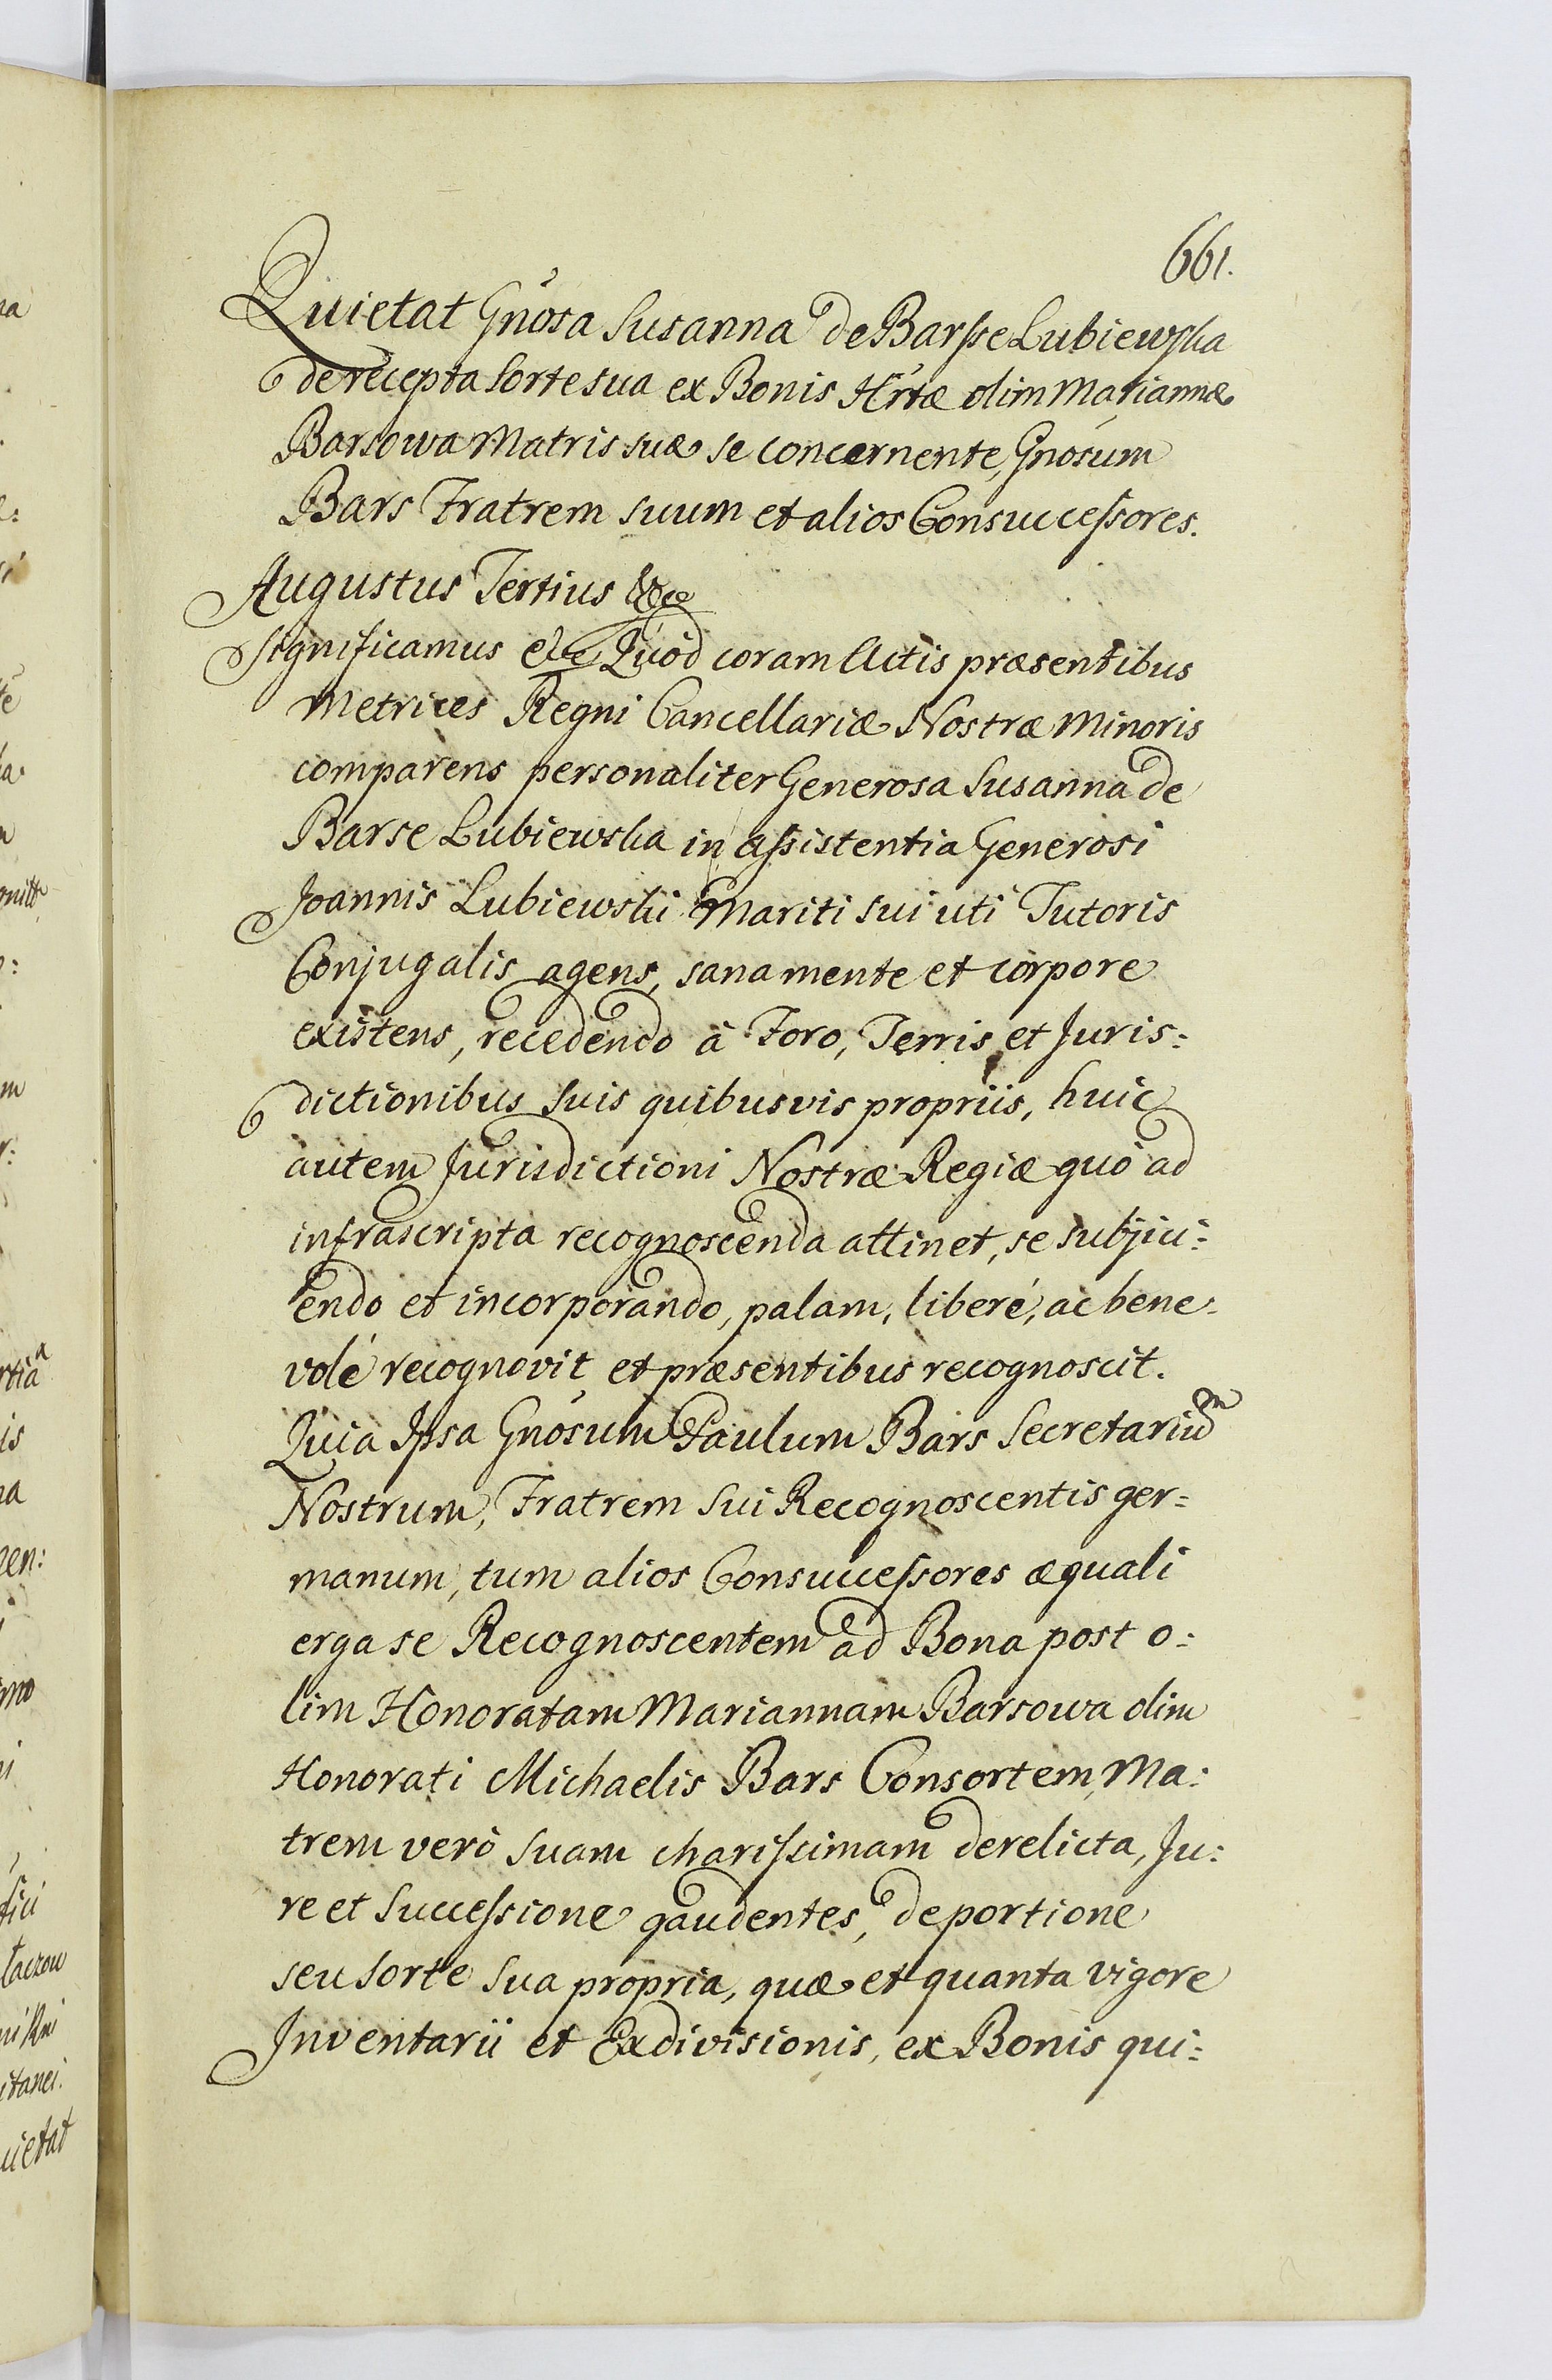 661.
Quietat Gnosa Susanna de Barsse Lubiewska
de recepta Sorte sua ex Bonis Hrtæ olim Mariannæ
Barsowa Matris suæ se concernente, Gnosum
Bars Fratrem suum et alios Consuccessores.
Augustus Tertius &c
Significamus etc Quod coram Actis præsentibus
Metrices Regni Cancellariæ Nostræ Minoris
comparens personaliter Generosa Susanna de
Barse Lubiewska in assistentia Generosi
Joannis Lubiewski Mariti sui uti Tutoris
Conjugalis agens, sana mente et corpore
existens, recedendo à Foro, Terris et Juris=
dictionibus suis quibusvis propriis, huic
autem Jurisdictioni Nostræ Regiæ quò ad
infrascripta recognoscenda attinet, se subjici=
endo et incorporando, palam, liberé, ac bene=
volé recognovit et præsentibus recognoscit.
Quia Ipsa Gnosum Paulum Bars Secretariũm
Nostrum, Fratrem sui Recognoscentis ger=
manum, tum alios Consuccessores æquali
erga se Recognoscentem ad Bona post o=
lim Honoratam Mariannam Barsowa olim
Honorati Michaelis Bars Consortem, Ma=
trem verò suam charissimam derelicta, Ju=
re et Successione gaudentes, de portione
seu Sorte sua propria, quæ et quanta vigore
Inventarii et Exdivisionis, ex Bonis qui=